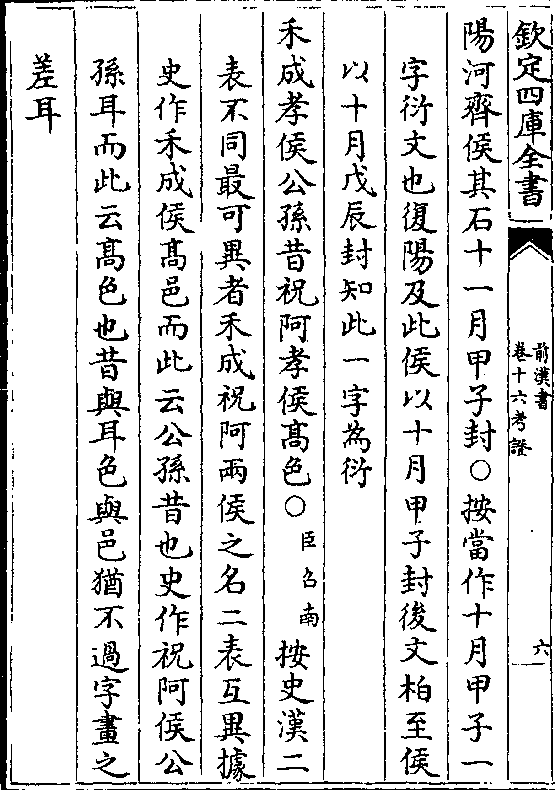 欽定四庫全書
前漢書
卷十六考證
六
陽河齊侯其石十一月甲子封○按當作十月甲子一
字衍文也復陽及此侯以十月甲子封後文柏至侯
以十月戊辰封知此一字為衍
禾成孝侯公孫昔祝阿孝侯髙色○臣召南按史漢二
表不同最可異者禾成祝阿兩侯之名二表互異據
史作禾成侯髙邑而此云公孫昔也史作祝阿侯公
孫耳而此云髙色也昔與耳色與邑猶不過字畫之
差耳